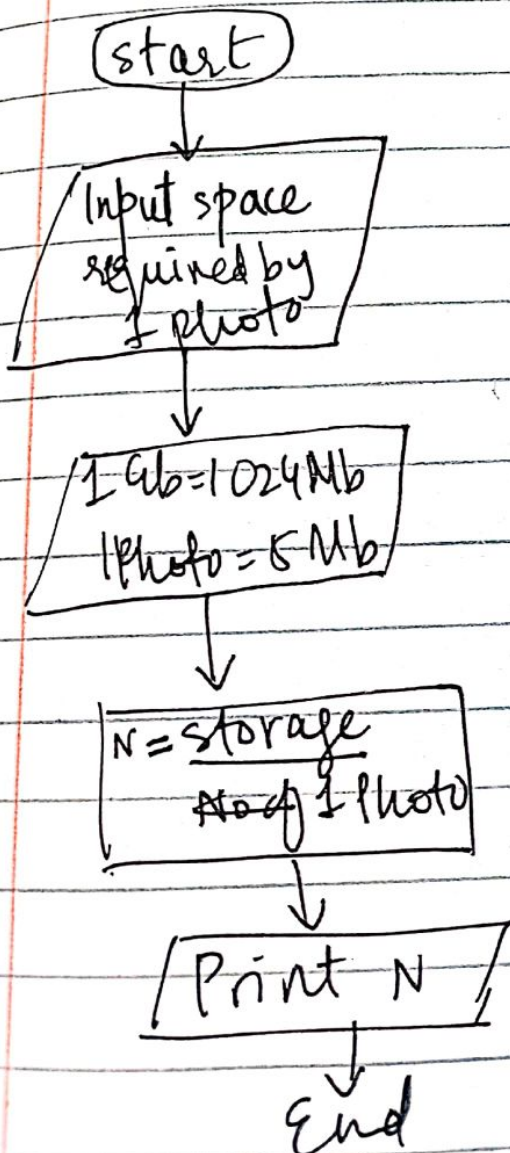 start
Input space
required by
1 photo
1 Gb=1024Mb
1Photo = 5 Mb
N = storage
No of 1 Photo
Print N
End